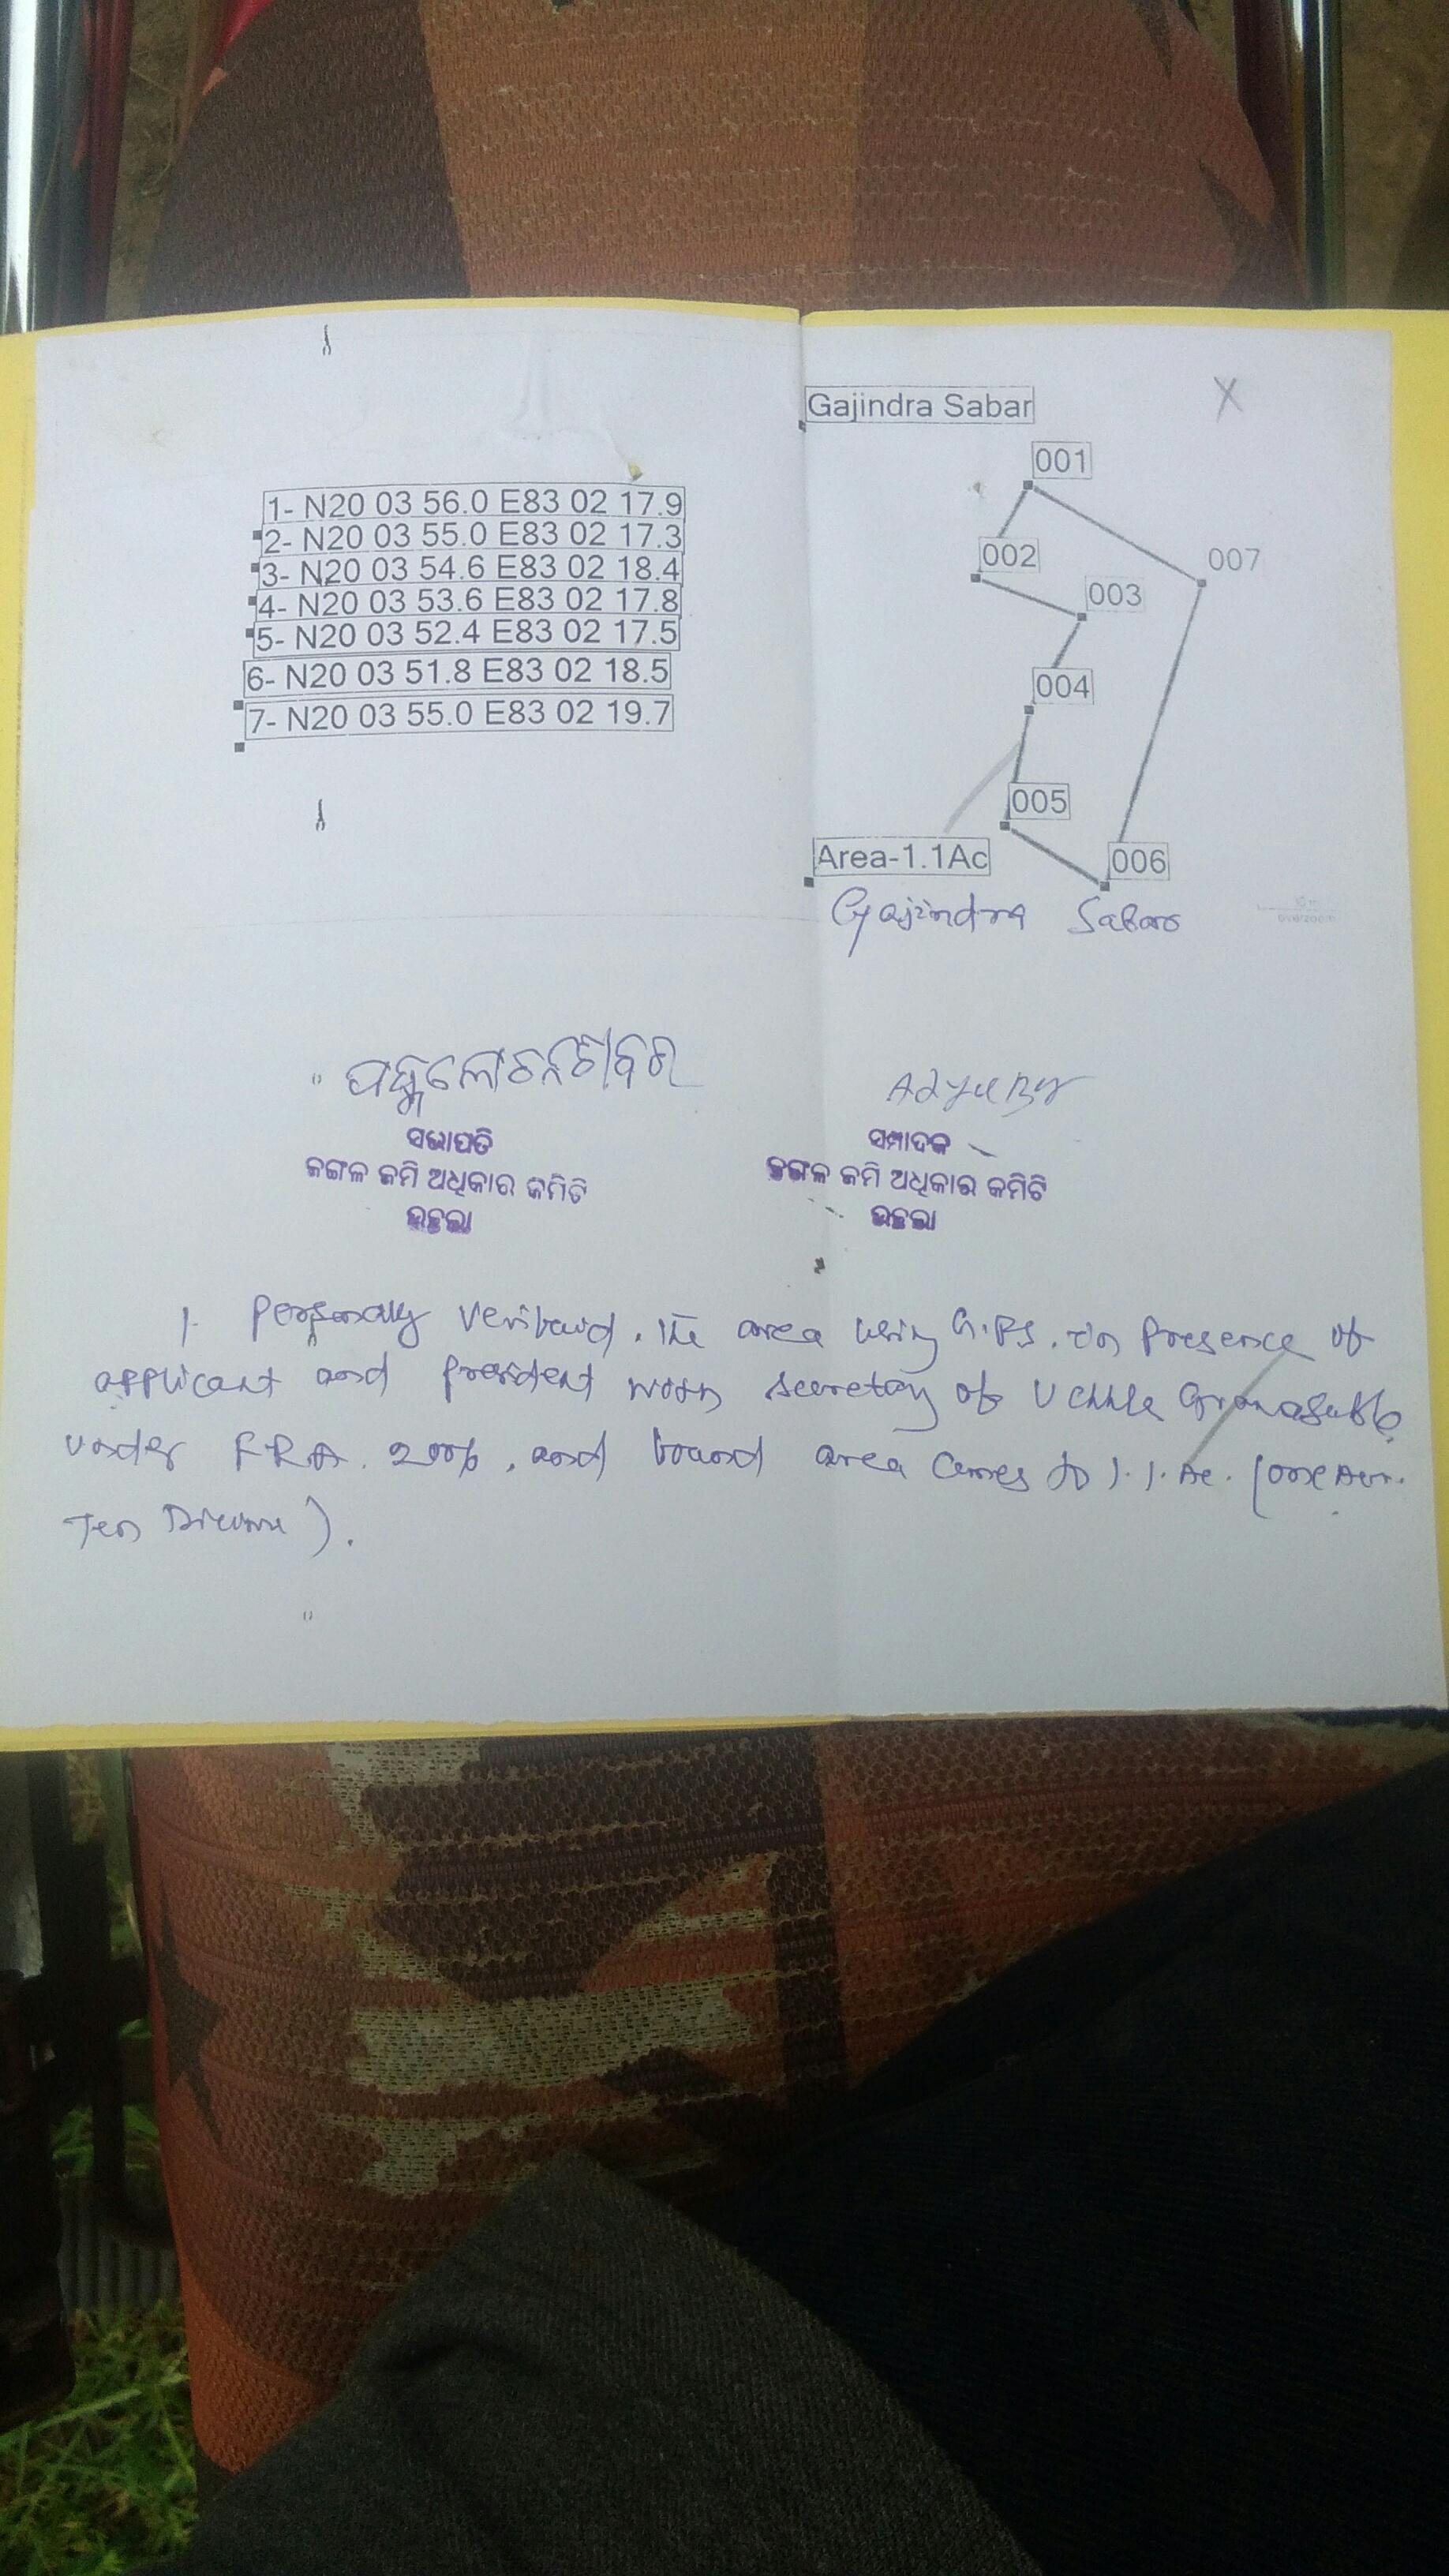 Gajindra Sabar
1- N20 03 56.0 E83 02 17.9
2- N20 03 55.0 E83 02 17.3
3- N20 03 54.6 E83 02 18.4
4- N20 03 53.6 E83 02 17.8
5- N20 03 52.4 E83 02 17.5
6- N20 03 51.8 E83 02 18.5
7- N20 03 55.0 E83 02 19.7
001
002
007
003
004
005
Area-1.1Ac
006
Gajindra Sabar
ସଭାପତି
ଜଙ୍ଗଲ ଜମି ଅଧିକାର କମିଟି
ସମ୍ପାଦକ
ଜଙ୍ଗଲ ଜମି ଅଧିକାର କମିଟି
Personally the area using G.P.S. in presence of
applicant and president secretary of
under F.R.A. 2006, and area comes to 1.1. Ac. (one
Ten).